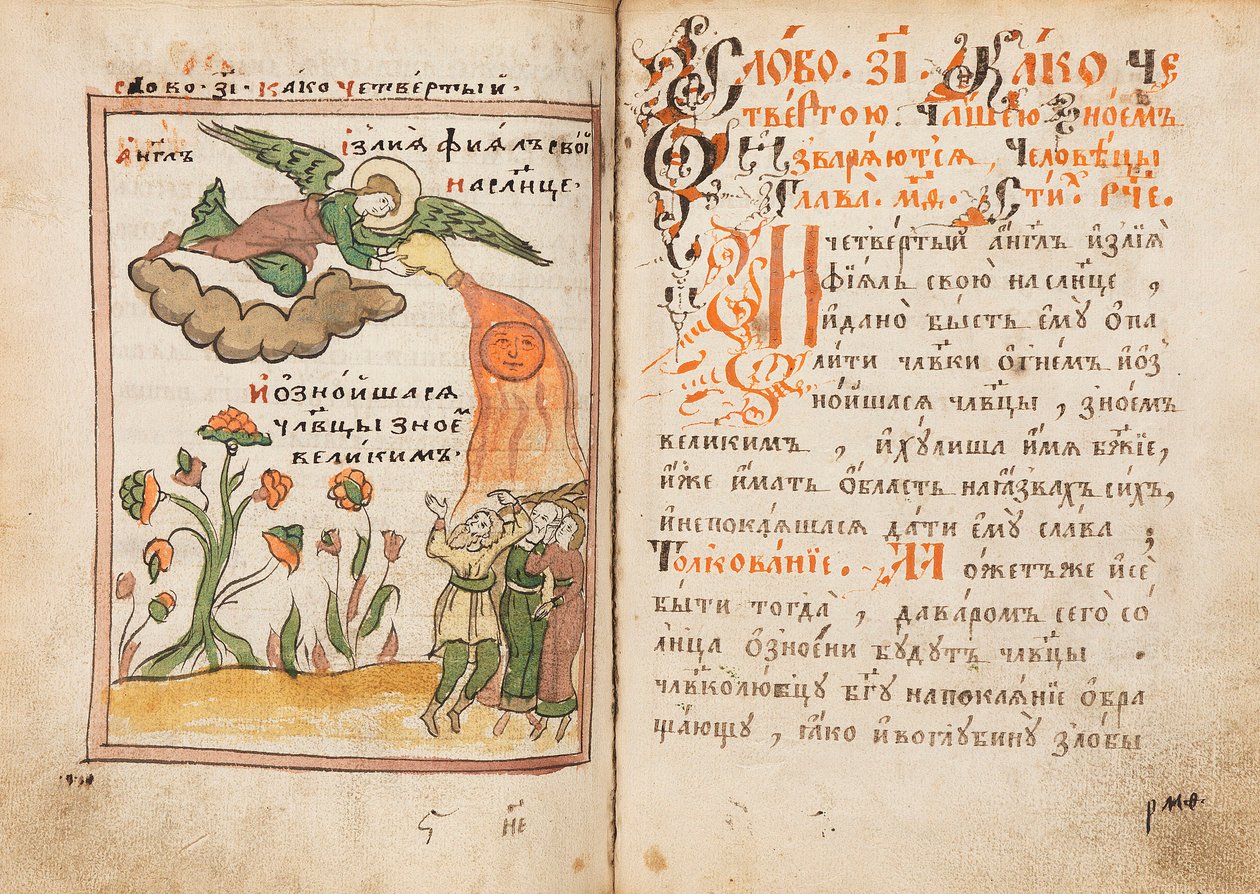 слово · з҃і · Како четве́ртый ·
а́нг҃лъ
ізлия̀ фия́лъ свои̑
на сл҃нце ·
И̑ ѡзно́йшася
чл҃вцы зноем
вели́кимъ ·
Сло́во · з҃і · Ка́ко че
тве́ртою · ча́шею зно́емъ
ѡ҆зваря́ются, человѣцы
Глава̀ · м҃ѳ · Сти́х · р҃че ·
И҆ четве́ртый а҆́нг҃лъ и҆злїѧ̀
фїа́лъ свою̀ на сл҃нце,
и҆ дано̀ бы́сть є҆мꙋ̀ ѡ҆па
ли́ти чл҃вки ѻ҆гне́мъ и҆ ѡ҆з
но́йшася чл҃вцы, зно́емъ
вели́кимъ, и҆ хꙋ́лиша и҆́мя бж҃їе,
и҆́же и҆́мать ѻ҆́бласть на ꙗ҆́звахъ си́хъ,
и҆ не пока́яшася да́ти є҆мꙋ̀ сла́ва ;
Толкова́нїе · Мо́жетъ же и҆ сѐ
бы́ти тогда̀, да ва́ромъ сегѡ̀ со́
лнца ѡ҆зное́ни бꙋ́дꙋтъ чл҃вцы ·
чл҃вколю́бцꙋ бг҃ꙋ на покая́нїе ѡ҆бра
ща́ющꙋ, ꙗ҆́ко и҆ во глꙋбинꙋ̀ зло́бы
н҃е
рмѳ ·